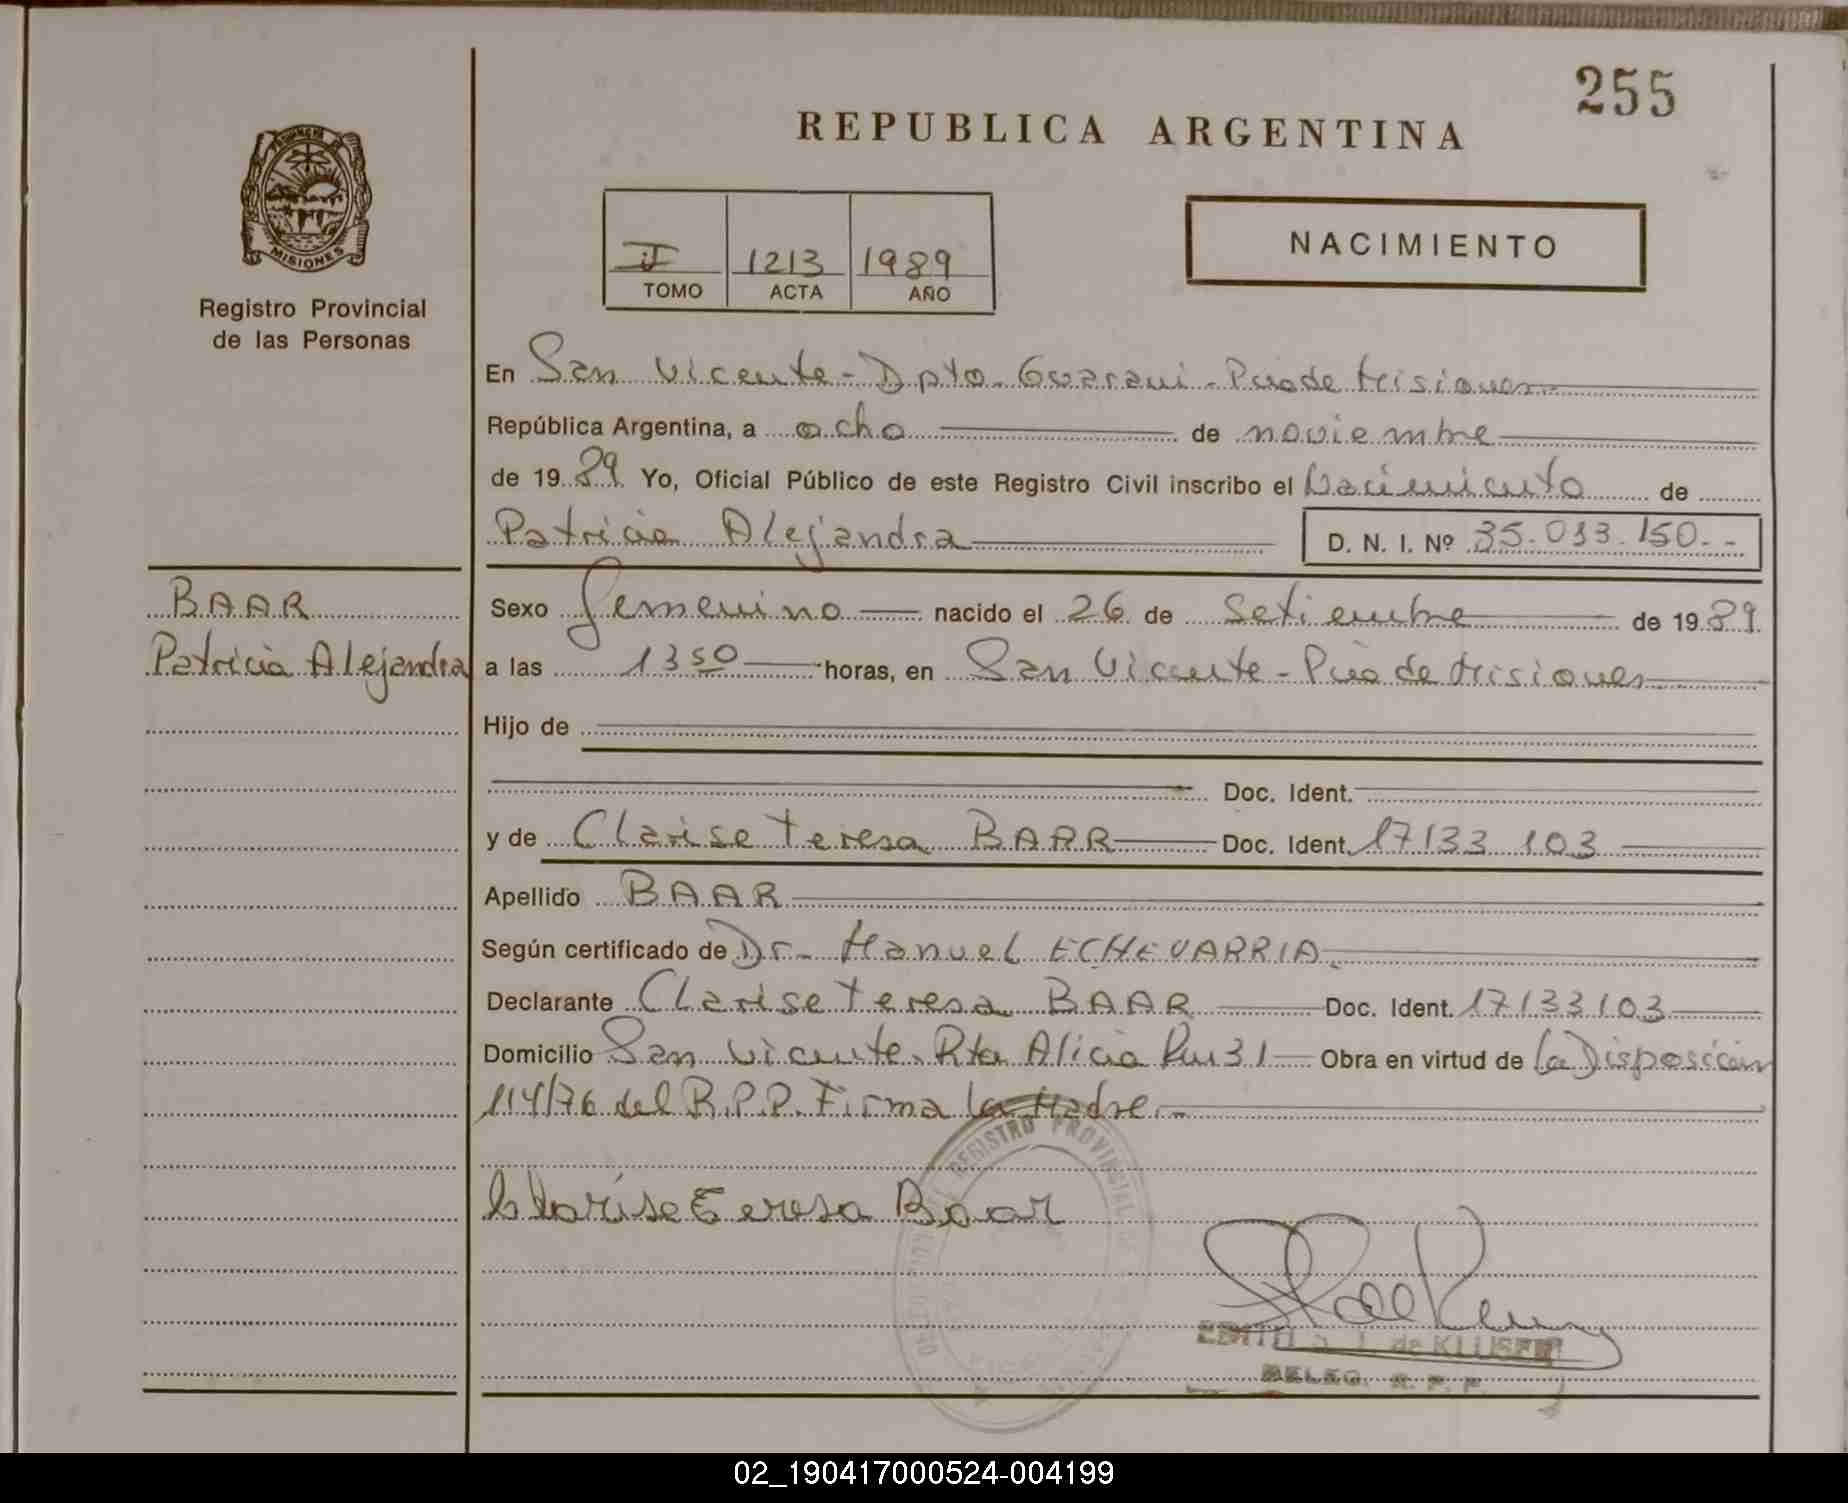 255
REPUBLICA ARGENTINA
MISIONES
Registro Provincial
de las Personas
II 1213 1989
TOMO ACTA AÑO
NACIMIENTO
En San Vicente - Dpto. Guarani - Pcia de Misiones
República Argentina, a ocho de noviembre
de 1989 Yo, Oficial Público de este Registro Civil inscribo el Nacimiento de
Patricia Alejandra D. N. I. Nº 35.013.150.--
BAAR
Patricia Alejandra
Sexo femenino nacido el 26 de Setiembre de 1989.
a las 13 50 horas, en San Vicente - Pcia de Misiones
Hijo de
Doc. Ident.
y de Clarise Teresa BAAR Doc. Ident. 17133 103
Apellido BAAR
Según certificado de Dr. Manuel ECHEVARRIA.
Declarante Clarise Teresa BAAR Doc. Ident. 17133103
Domicilio San Vicente. Rta Alicia Km 31 Obra en virtud de la Disposición
114/76 del R.P.P. Firma la Madre.-
REGISTRO PROVINCIAL DE
Clarise Teresa Baar
EDITH de KLUSEN
DELEG. R. P. P.
02_190417000524-004199